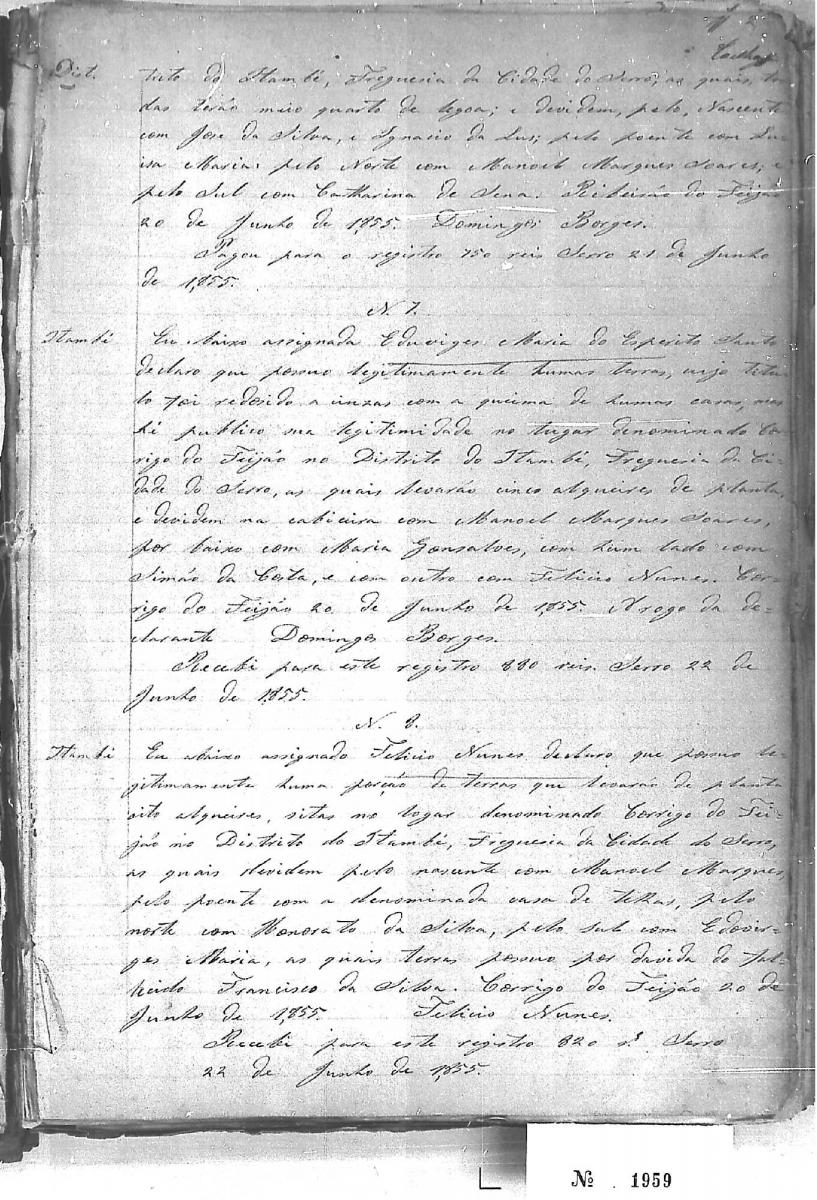 2
Dist. tricto do Itambé, Freguesia da Cidade do Serro; as quais, to-
das terão meio quarto de legoa; e devidem, pelo, Nascente
com José da Silva, e Ignacio da Lus; pelo poente com Lu-
isa Maria: pelo Norte com Manoel Marques Soares; e
pelo Sul com Catharina de Sena. Ribeirão do Feijão
20 de Junho de 1,855. Domingos Borges.
Pagou para o registro 750 reis Serro 21 de Junho
de 1,855.
N. 7.
Itambé Eu abaixo assignada Eduviges Maria do Espirito Santo
declaro que possuo legitimamente humas terras, cujo titu-
lo foi redosido a cinzas com a queima de humas casas, mas
hé publico sua legitimidade no lugar denominado Cor-
rigo do Feijão no Distrito do Itambé, Freguesia da Ci-
dade do Serro, as quais levarão cinco alqueires de planta,
e devidem na cabiceira com Manoel Marques Soares,
por baixo com Maria Gonsalves, com hum lado com
Simão da Costa, e com outro com Felicio Nunes. Cor-
rigo do Feijão 20 de Junho de 1,855. A rogo da de-
clarante Domingos Borges.
Recebi para este registro 880 reis. Serro 22 de
Junho de 1,855.
N. 8.
Itambé Eu abaixo assignado Felicio Nunes declaro que possuo le-
gitimamente huma porção de terras que levarão de planta
oito alqueires, sitas no logar denominado Corrigo do Fei-
jão no Distrito do Itambé, Freguesia da Cidade do Serro,
as quais devidem pelo nascente com Manoel Marques,
pelo poente com a denominada casa de telhas, pelo
norte com Honorato da Silva, pelo sul com Edovir-
ges Maria, as quais terras possuo por davida do fal-
licido Francisco da Silva. Corrigo do Feijão 20 de
Junho de 1,855. Felicio Nunes.
Recebi para este registro 820 rs. Serro
22 de Junho de 1,855.
Nº 1959